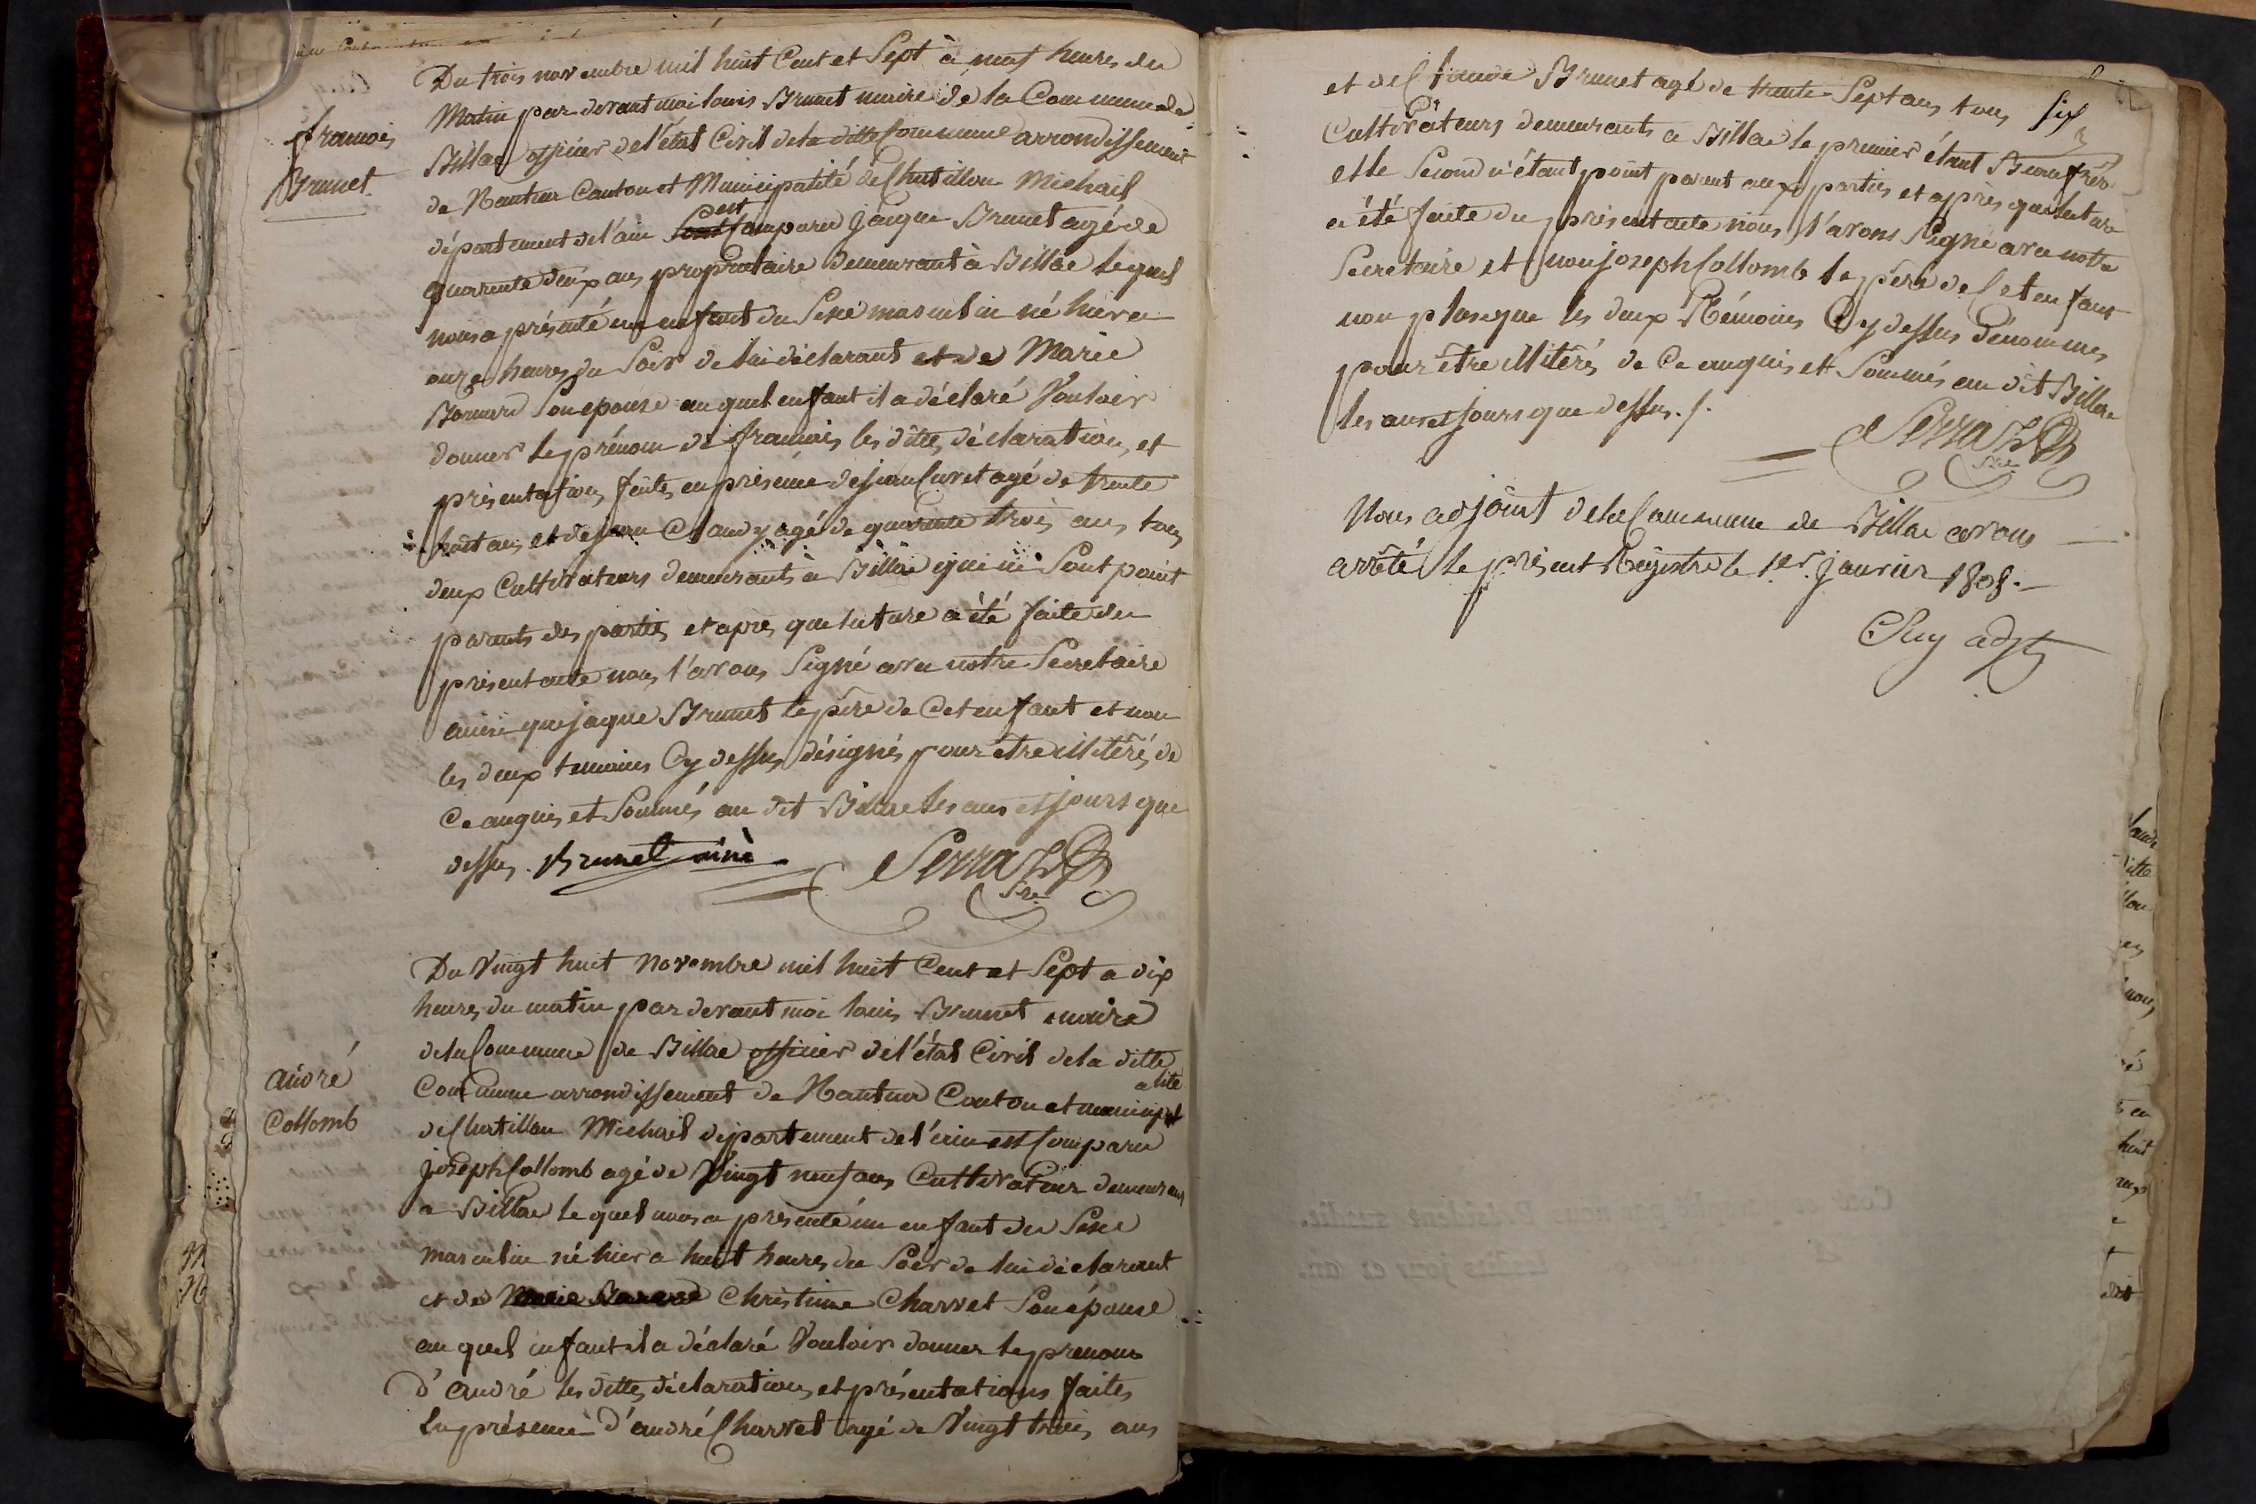 françois
Brunet
Du trois novembre mil huit Cent et Sept à neuf heures du
Matin par devant moi louis Brunet maire de la Commune de
Billac officier de l'état Civil de la ditte Commune arrondissement
de Nantua Canton et Municipalité de Chatillon Michail
département de l'ain est Comparu jacque Brunet agé de
quarente deux ans proprietaire demeurant à Billac lequel
nous a présenté un enfant du Sexe masculin né hier a
onze heures du Soir de lui déclarant et de Marie
Son epouse au quel enfant il a déclaré Vouloir
donner le prénom de françois les dittes déclaration et
présentation faites en présence de jean Curvet agé de trente
huit ans et de jean Claudy agé de quarente trois ans tous
deux Cultivateurs demeurants à Billac qui ni Sont point
parents des parties et apres que lecture a été faite du
présent acte nous l'avons Signé avec notre Secretaire
ainsi que jaque Brunet le père de Cet enfant et non
les deux temoins Cy dessus désignés pour être illitérés de
Ce anquis et Sommés au dit Billac les ans et jours que
dessus. Brunet ainè
Serraz
Sre
andré
Collomb
Du Vingt huit Novembre mil huit Cent et Sept a dix
heures du matin par devant moi louis Brunet maire
de la Commune de Billac officier de l'état Civil de la ditte
Commune arrondissement de Nantua Canton et municipalité
de Chatillon Michail département de l'ain est Comparu
joseph Collomb agé de Vingt neuf ans Cultivateur demeurant
a Billac le quel nous a présenté un enfant du Sexe
masculin né hier a huit heures du Soir de lui déclarant
et de Christine Charvet Son épouse
au quel enfant il a déclaré Vouloir donner le prenom
d'andré les dittes déclarations et présentations faites
En présence d'andré Charvet agé de Vingt trois ans
et de Claude Brunet agé de trente Sept ans tous
Cultivateurs demeurants a Billac le premier étant Beaufrère
et le Second n'étant point parent aux parties et après que lecture
a été faite du présent acte nous l'avons Signé avec notre
Secretaire et non joseph Collomb le père de Cet enfant
non plus que les deux Témoins Cy dessus dénommés
pour être illitérés de Ce anquis et Sommés au dit Billac
les ans et jours que dessus./.
Serraz
Sre
Nous adjoint de la Commune de Billac avons
arrêté le présent Registre le 1er. janvier 1808.
Suy adjt